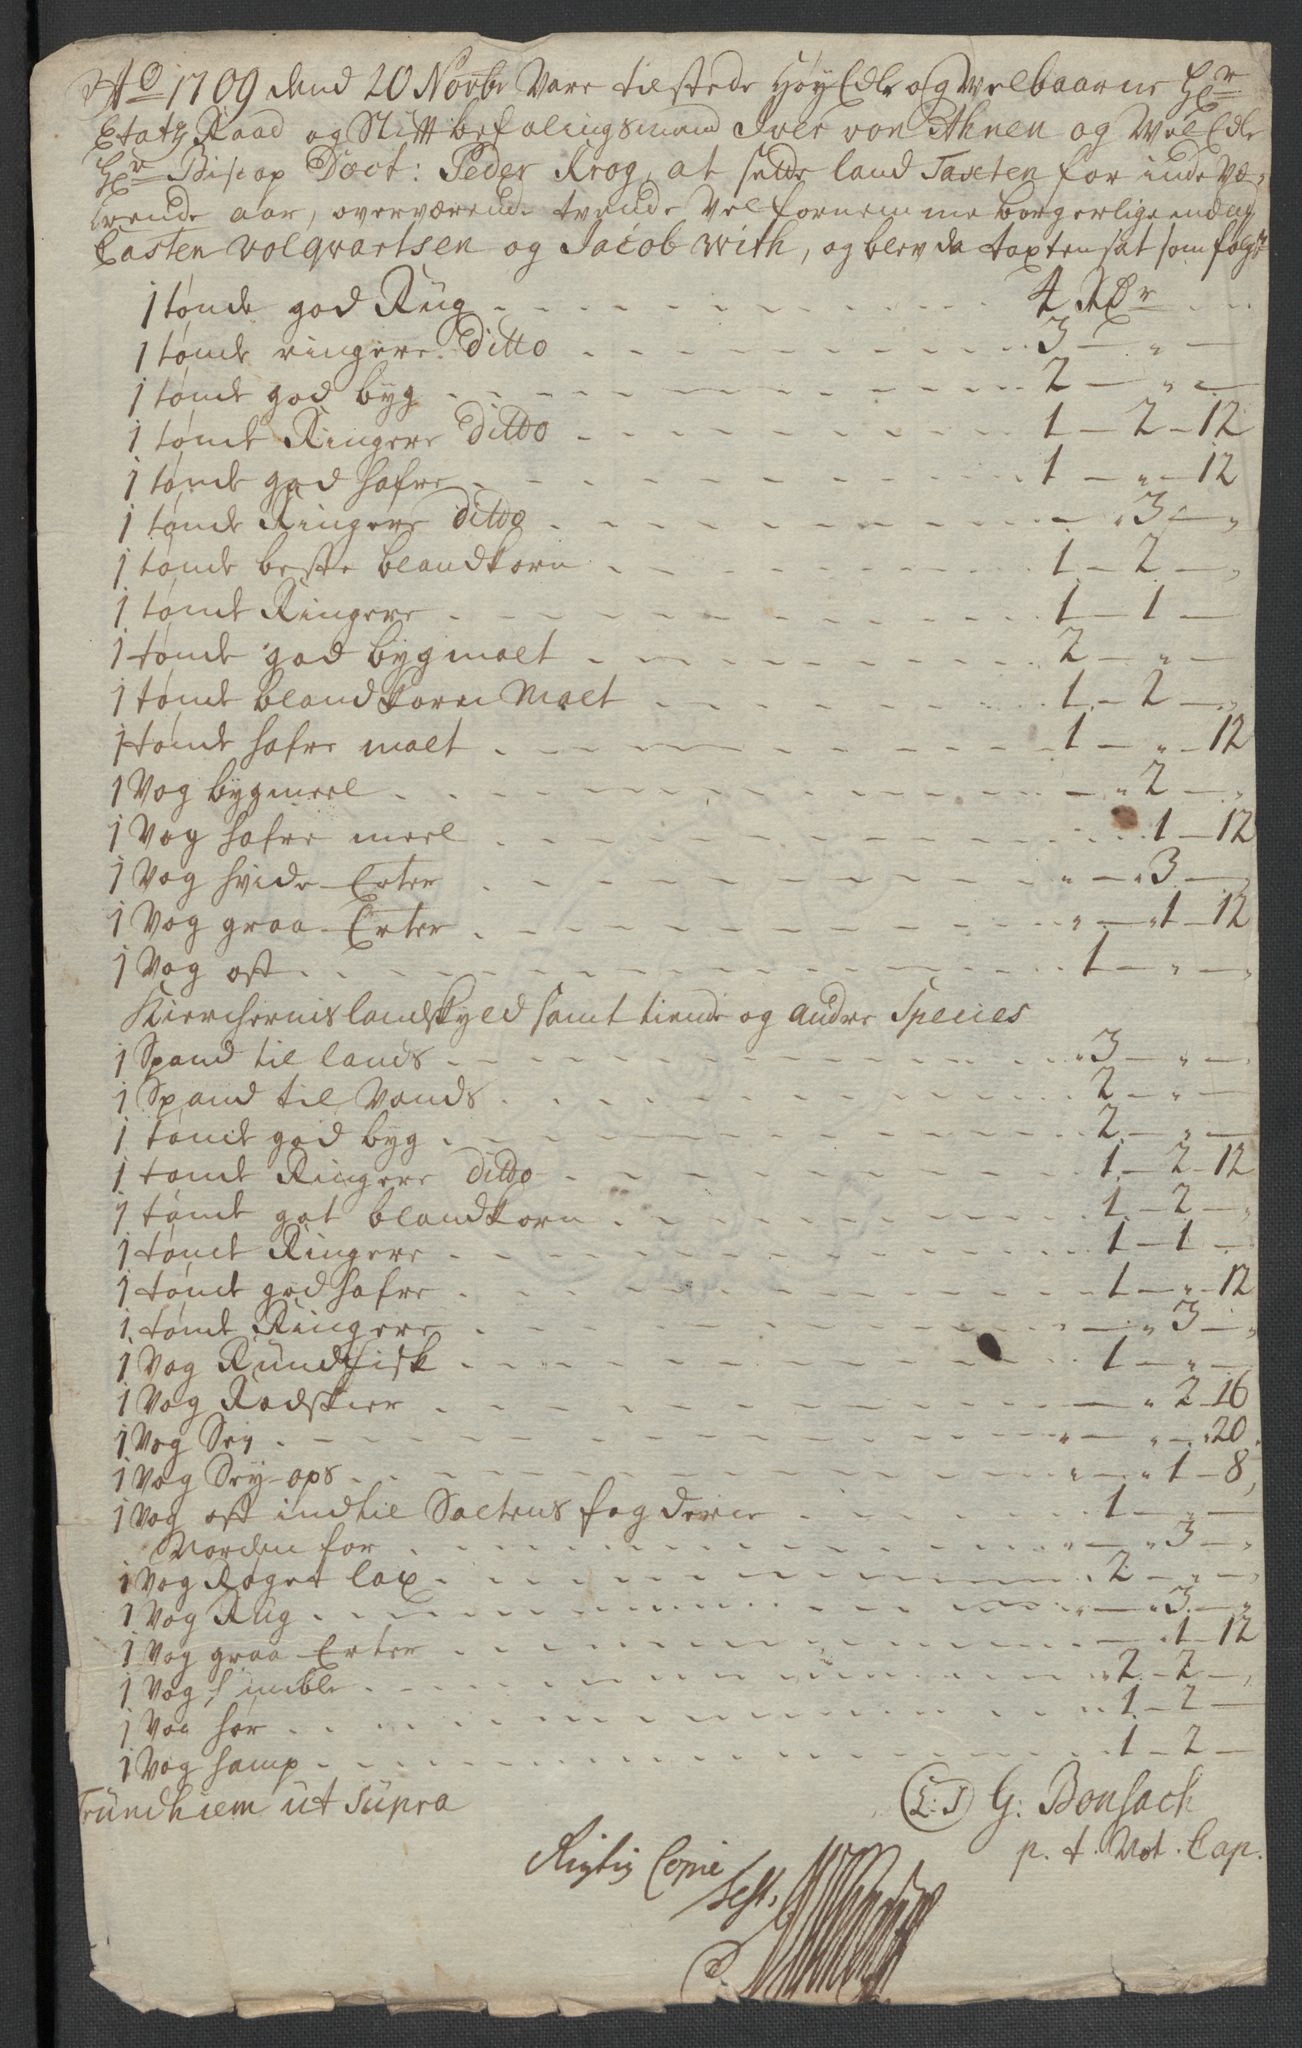 Ao 1709 dend 20 Novbr Vare tilstede HøyEdle og Welbaarne Hr
Etatz Raad og Stiftbefalingsmand Iver von Ahnen og WelEdle
Hr Biscop Doct: Peder Krog, at sette land Taxten for indeVæ-
rende aar, overværende tvende Velfornemme borgerlige mænd
Casten Volqvartsen og Jacob With, og blev da taxten sat som følger
1 tønde god Rug - - - 4 Rdr
1 tønde ringere Ditto - - - 3 — " —
1 tønde god byg - - - 2 — " —
1 tønde Ringere Ditto - - - 1 — 2 — 12
1 tønde god hafre - - - 1 — " — 12
1 tønde Ringere ditto - - - — " 3 — "
1 tønde beste blandkorn - - - 1 — 2 — "
1 tønde Ringere - - - 1 — 1 —
1 tønde god bygmalt - - - 2 — " —
1 tønde blandkorn Malt - - - 1 — 2 — "
1 tønde hafre malt - - - 1 — " — 12
1 Vog bygmeel - - - — " 2 — "
1 Vog hafre meel - - - 1 — 12
1 Vog hvide Erter - - - " — " 3 — "
1 Vog graa Erter - - - " — " 1 — 12
1 Vog ost - - - 1 — " — "
Kierchernis landskyld samt tiende og andre Species
1 Spand til lands - - - " 3 — " —
1 Spand til Vands - - - 2 — " —
1 tønde god byg - - - 2 — " —
1 tønde Ringere ditto - - - 1 — 2 — 12
1 tønde got blandkorn - - - 1 — 2 — "
1 tønde Ringere - - - 1 — 1 — "
1 tønde god hafre - - - 1 — " — 12
1 tønde Ringere - - - — " 3 — "
1 Vog Rundfisk - - - 1 — " —
1 Vog Rodskier - - - — " 2 — 16
1 Vog Sey - - - " — " — 20
1 Vog Sey ops - - - " — " 1 — 8
1 Vog ost indtil Saltens fogderie - - - 1 — " —
Norden for - - - " — " 3 — "
1 Vog Røget lax - - - 2 — " — "
1 Vog Rug - - - " — " 3 — "
1 Vog graa Erter - - - — 1 — 12
1 Vog humble - - - " 2 — 2 — "
1 Vog hør - - - 1 — 2 —
1 Vog hamp - - - 1 — 2 —
Trundhiem ut supra
(L:S) G: Bonsach
p. t. Not. Cap.
Rigtig Copie
test.